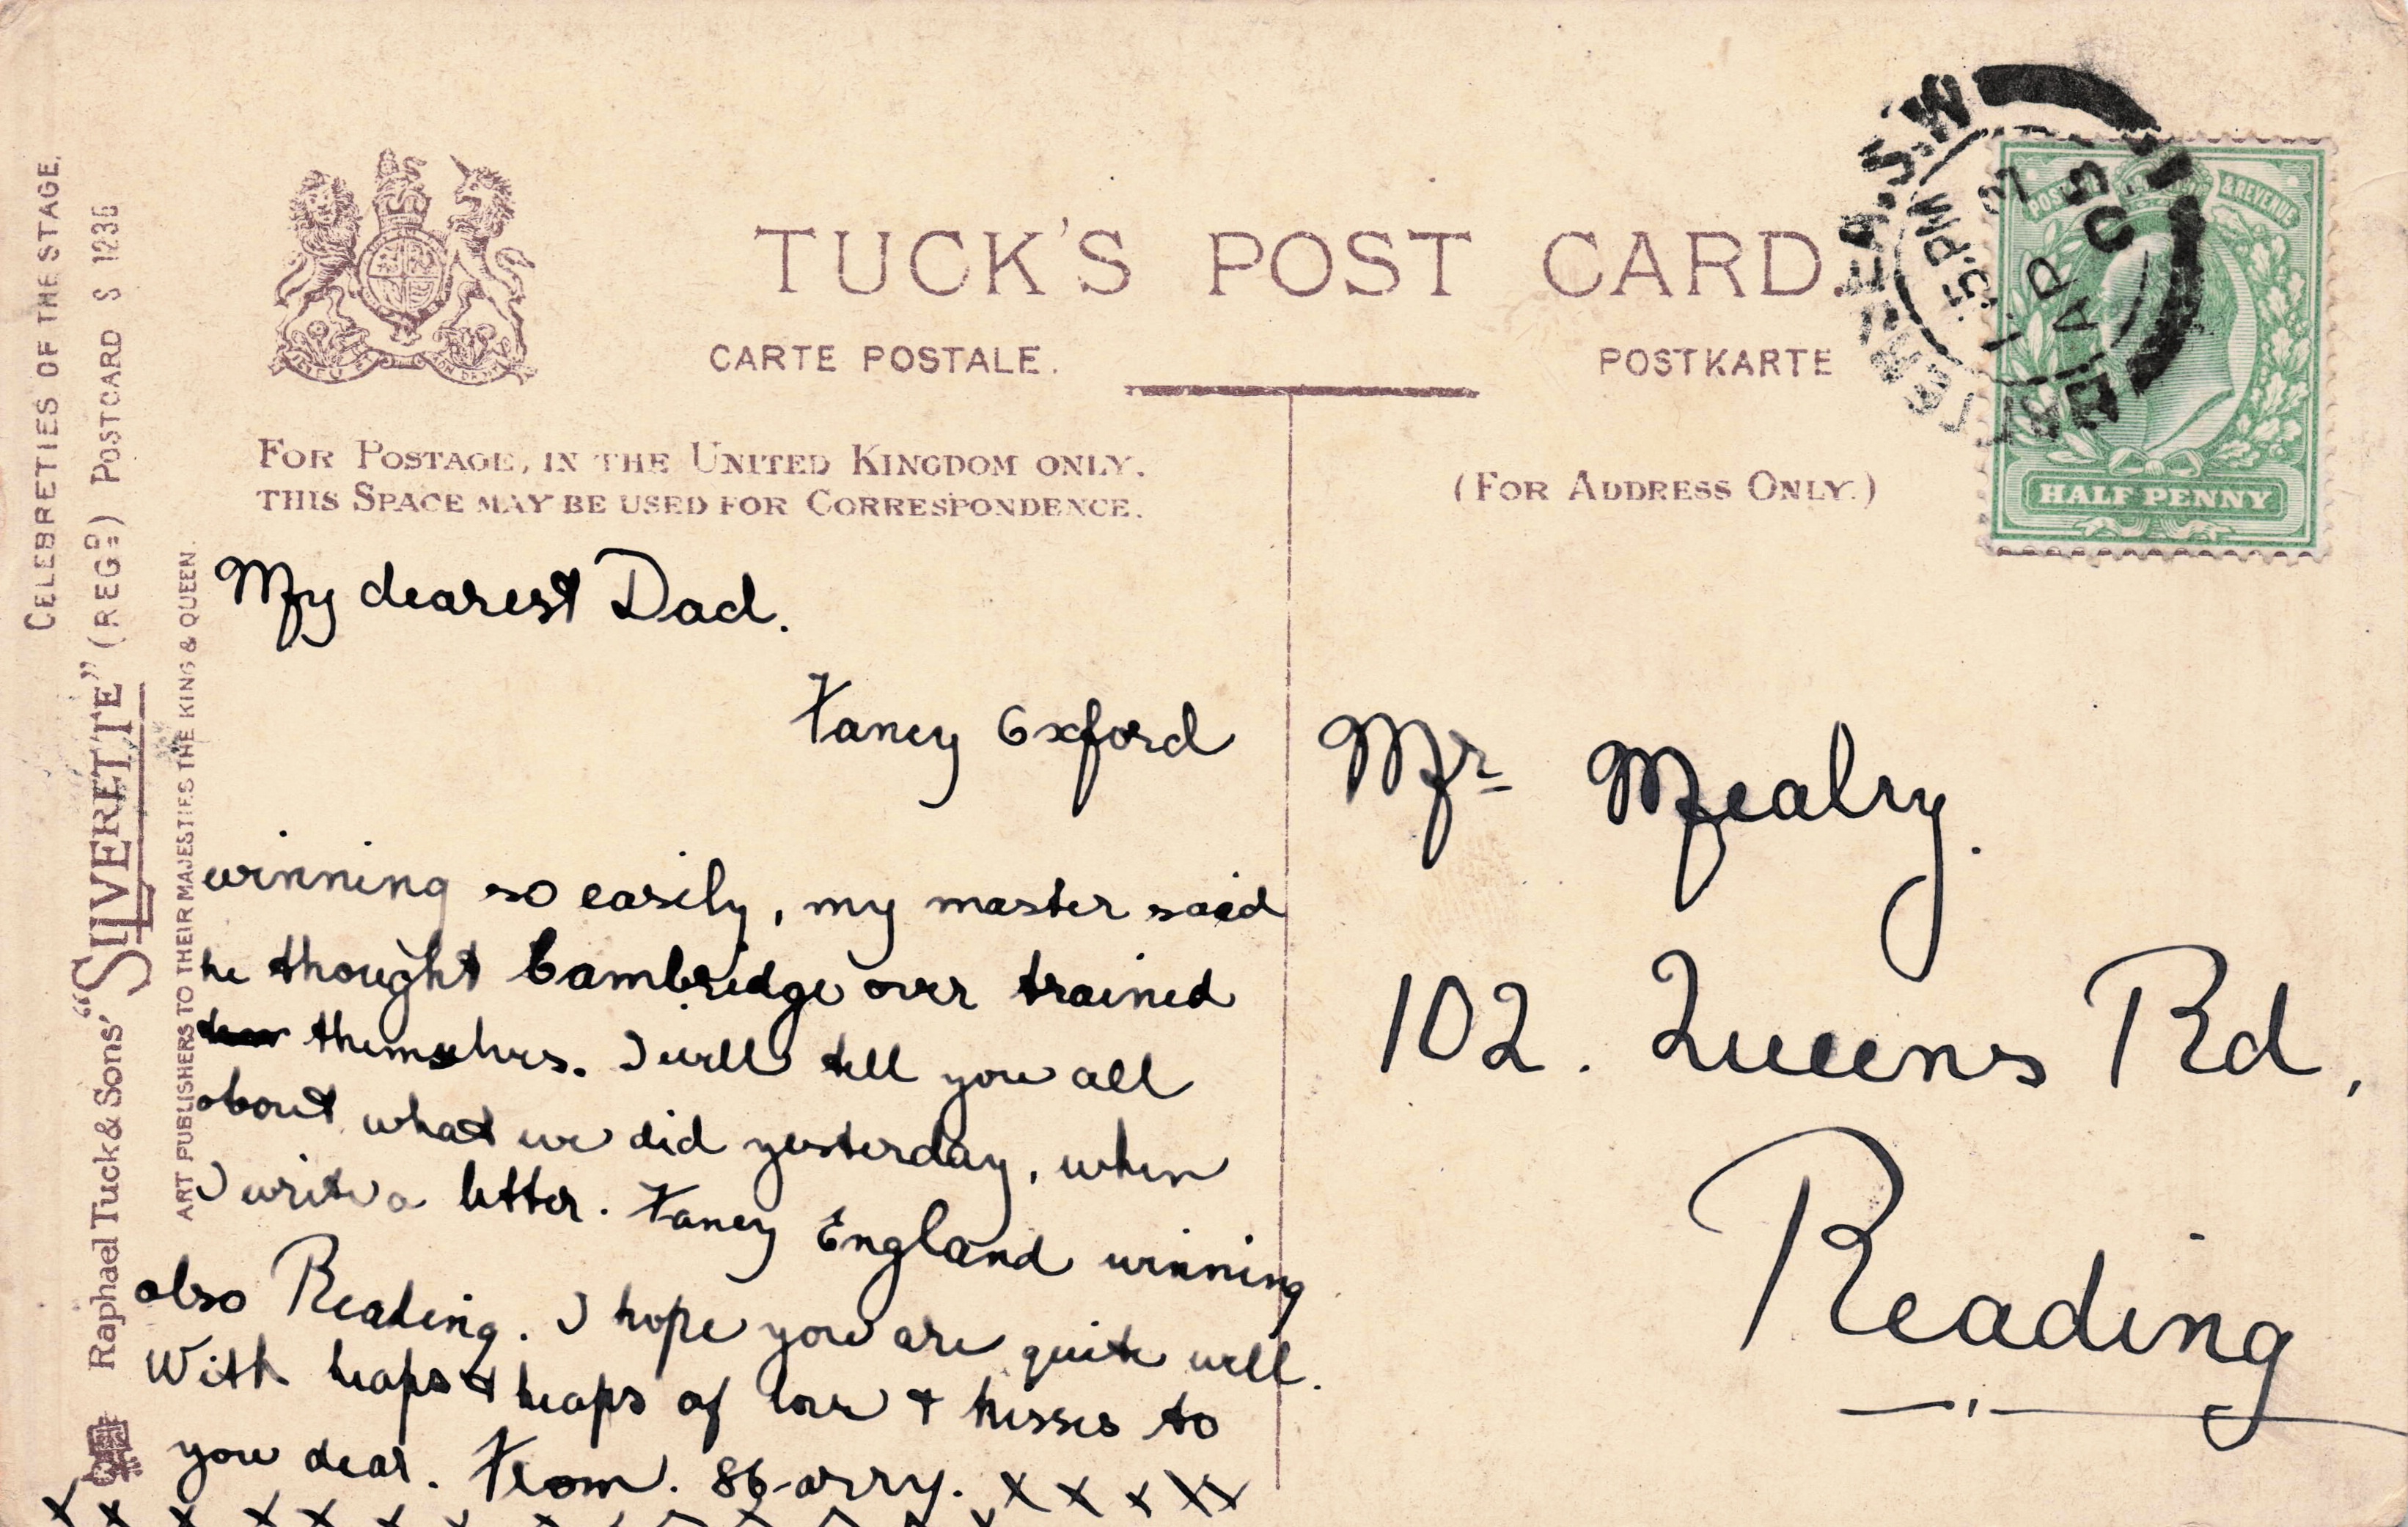 CELEBRETIES OF THE STAGE.
Raphael Tuck & Sons' "SILVERETTE" (REGD) POSTCARD S 1236
ART PUBLISHERS TO THEIR MAJESTIES THE KING & QUEEN.
TUCK'S POST CARD.
CARTE POSTALE. POSTKARTE
FOR POSTAGE, IN THE UNITED KINGDOM ONLY.
THIS SPACE MAY BE USED FOR CORRESPONDENCE.
(FOR ADDRESS ONLY.)
S.W
5. PM
AP
05
POSTAGE & REVENUE
HALF PENNY
My dearest Dad.
Fancy Oxford
winning so easily, my master said
he thought Cambridge over trained
themselves. I will tell you all
about what we did yesterday, when
I write a letter. Fancy England winning
also Reading. I hope you are quite well.
With heaps & heaps of love & kisses to
you dear. From. Harry. x x x x x
x x x x x x x x x x x x x
Mr Mealry.
102. Queens Rd,
Reading